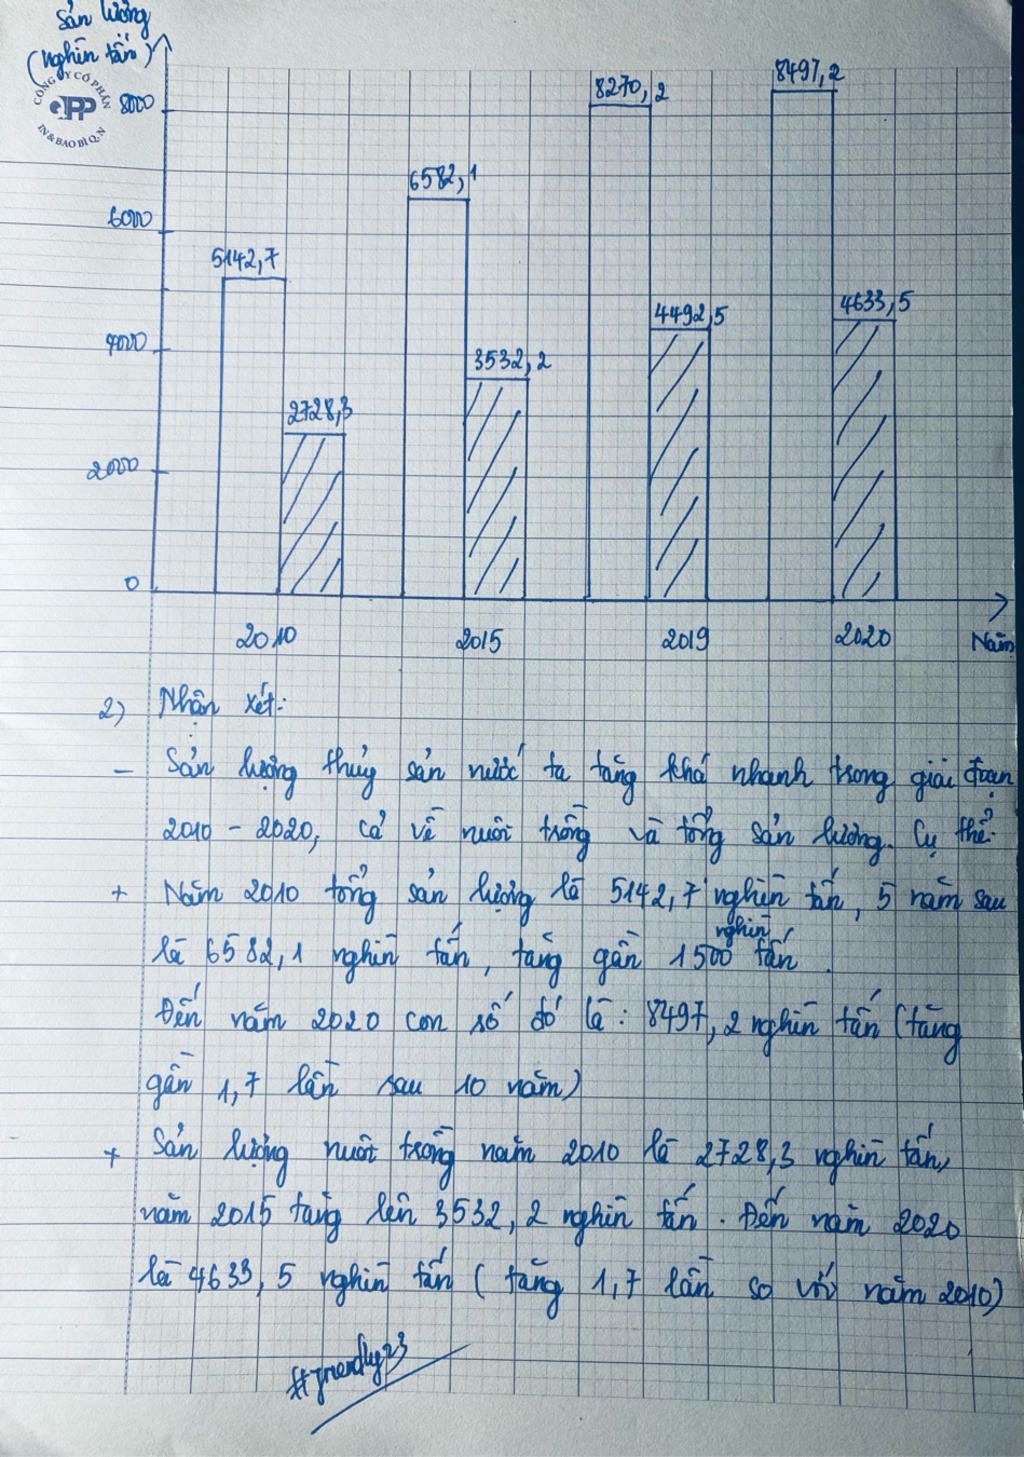 Sản lượng
(nghìn tấn)
CÔNG TY CỔ PHẦN
PP
IN & BAO BÌ Q.N
8000
6000
4000
2000
0
5142,7
2728,3
6582,1
3532,2
8270,2
4492,5
8497,2
4633,5
2010 2015 2019 2020 Năm
2) Nhận xét:
- Sản lượng thủy sản nước ta tăng khá nhanh trong giai đoạn
2010 - 2020, cả về nuôi trồng và tổng sản lượng. Cụ thể:
+ Năm 2010 tổng sản lượng là 5142,7 nghìn tấn, 5 năm sau
là 6582,1 nghìn tấn, tăng gần 1500 nghìn tấn.
Đến năm 2020 con số đó là: 8497,2 nghìn tấn (tăng
gần 1,7 lần sau 10 năm)
+ Sản lượng nuôi trồng năm 2010 là 2728,3 nghìn tấn,
năm 2015 tăng lên 3532,2 nghìn tấn. Đến năm 2020
là 4633,5 nghìn tấn (tăng 1,7 lần so với năm 2010)
#friendly23